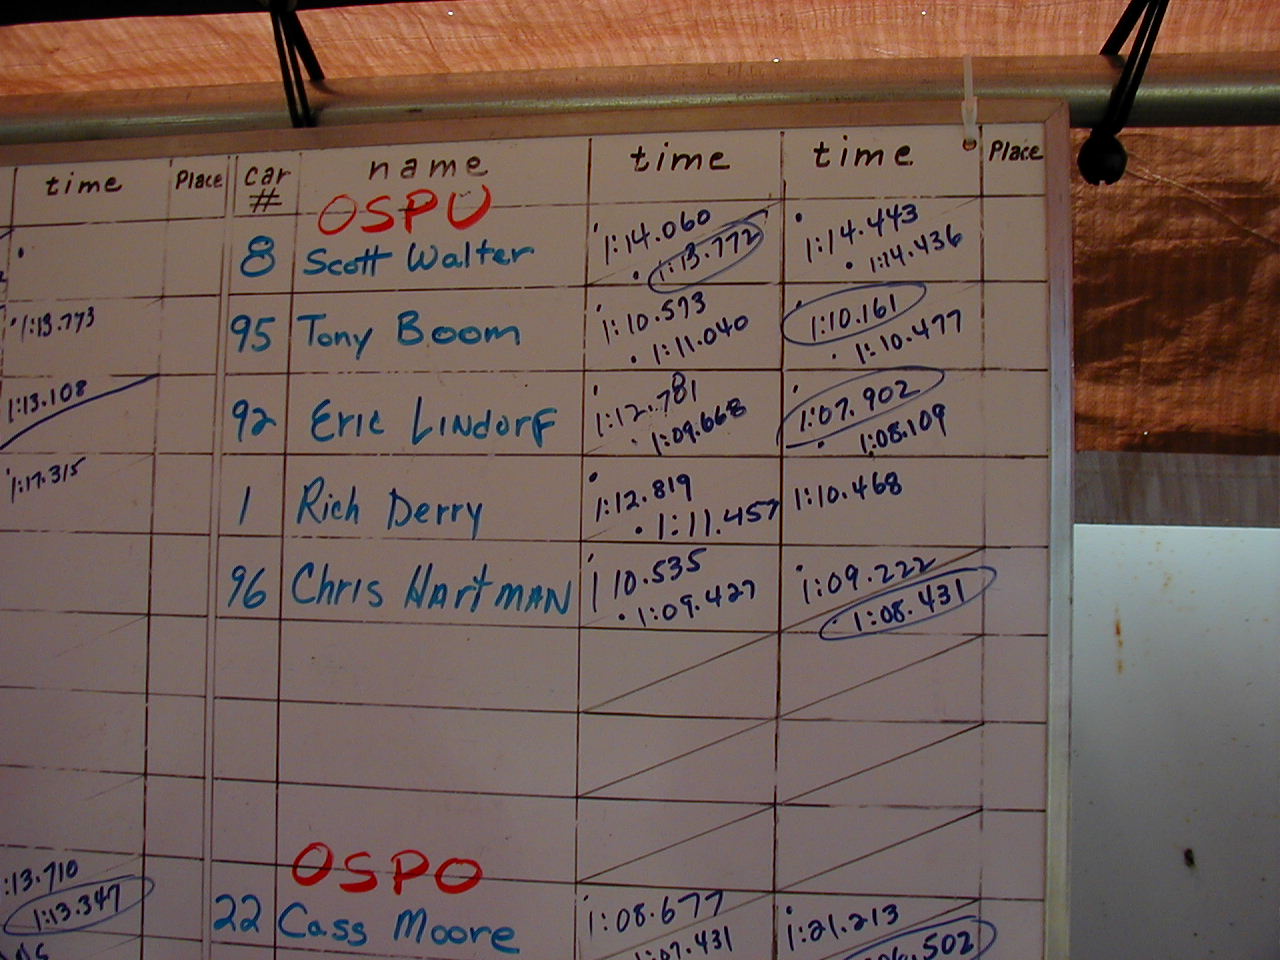 time Place car # name time time Place
OSPU
8 Scott Walter 1:14.060 1:13.772 1:14.443 1:14.436
1:13.773
95 Tony Boom 1:10.573 1:11.040 1:10.161 1:10.477
1:13.108
92 Eric Lindorf 1:12.781 1:09.668 1:07.902 1:08.109
1:17.315
1 Rich Derry 1:12.819 1:11.457 1:10.468
96 Chris HArtMAN 1 10.535 1:09.427 1:09.222 1:08.431
OSPO
:13.710
1:13.347
22 Cass Moore 1:08.677 1:07.431 1:21.213 .502